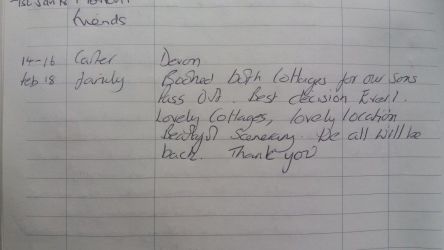 friends
14-16 Carter Devon
Feb 18 family Booked both Cottages for our sons
Pass Out. Best decision Ever!.
Lovely Cottages, lovely location
Beautyful Scenerary. We all will be
back. Thank you